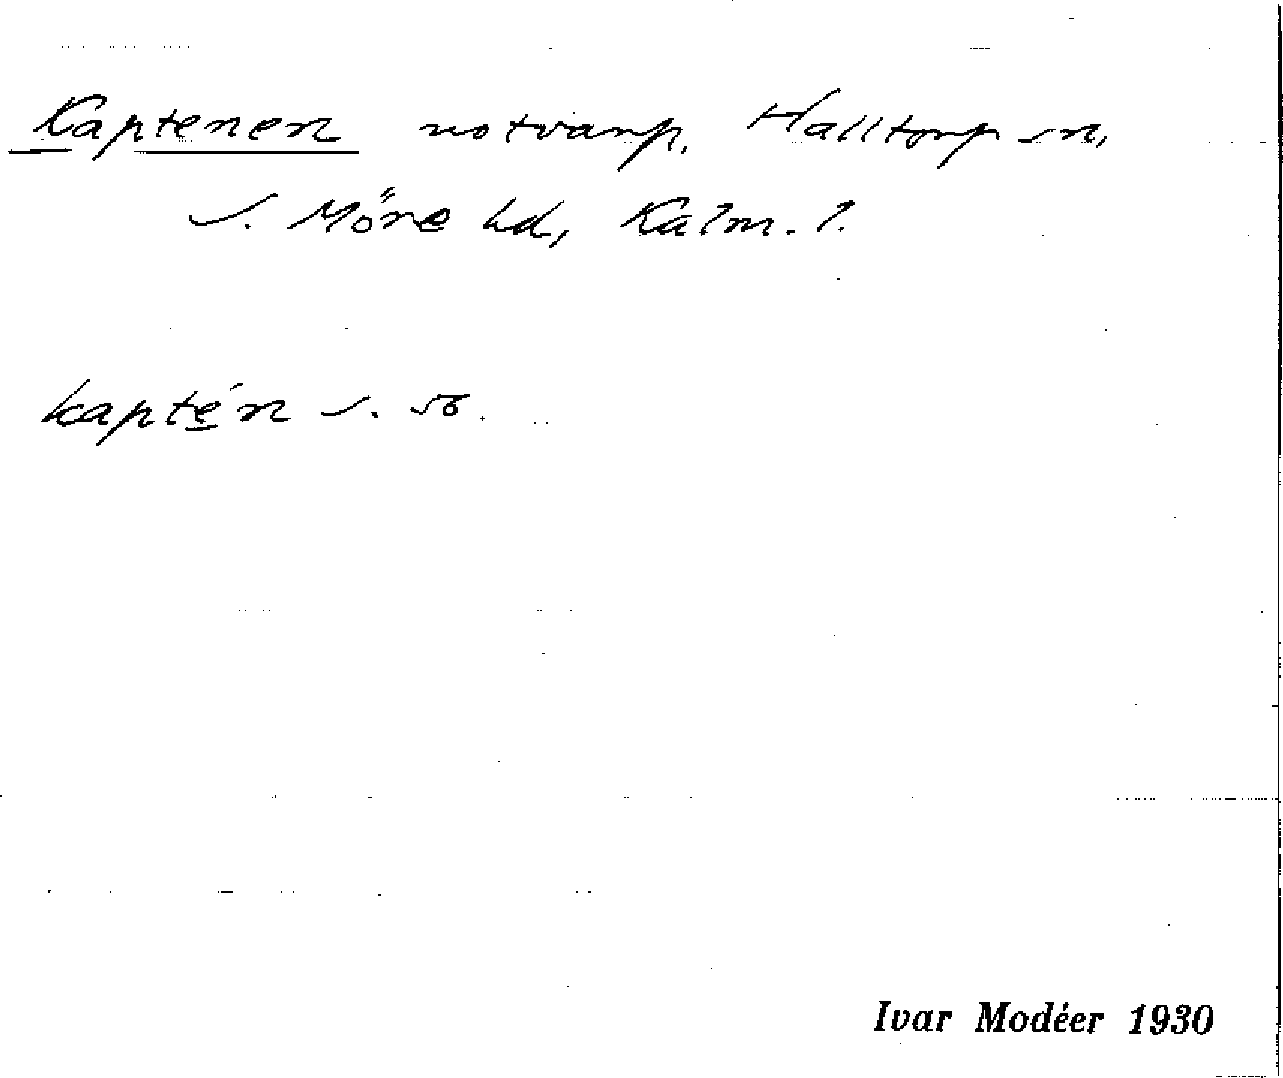 Kaptenen notvarp, Halltorp sn,
S. Möre hd, Kalm. l.
kaptén s. 56.
Ivar Modéer 1930